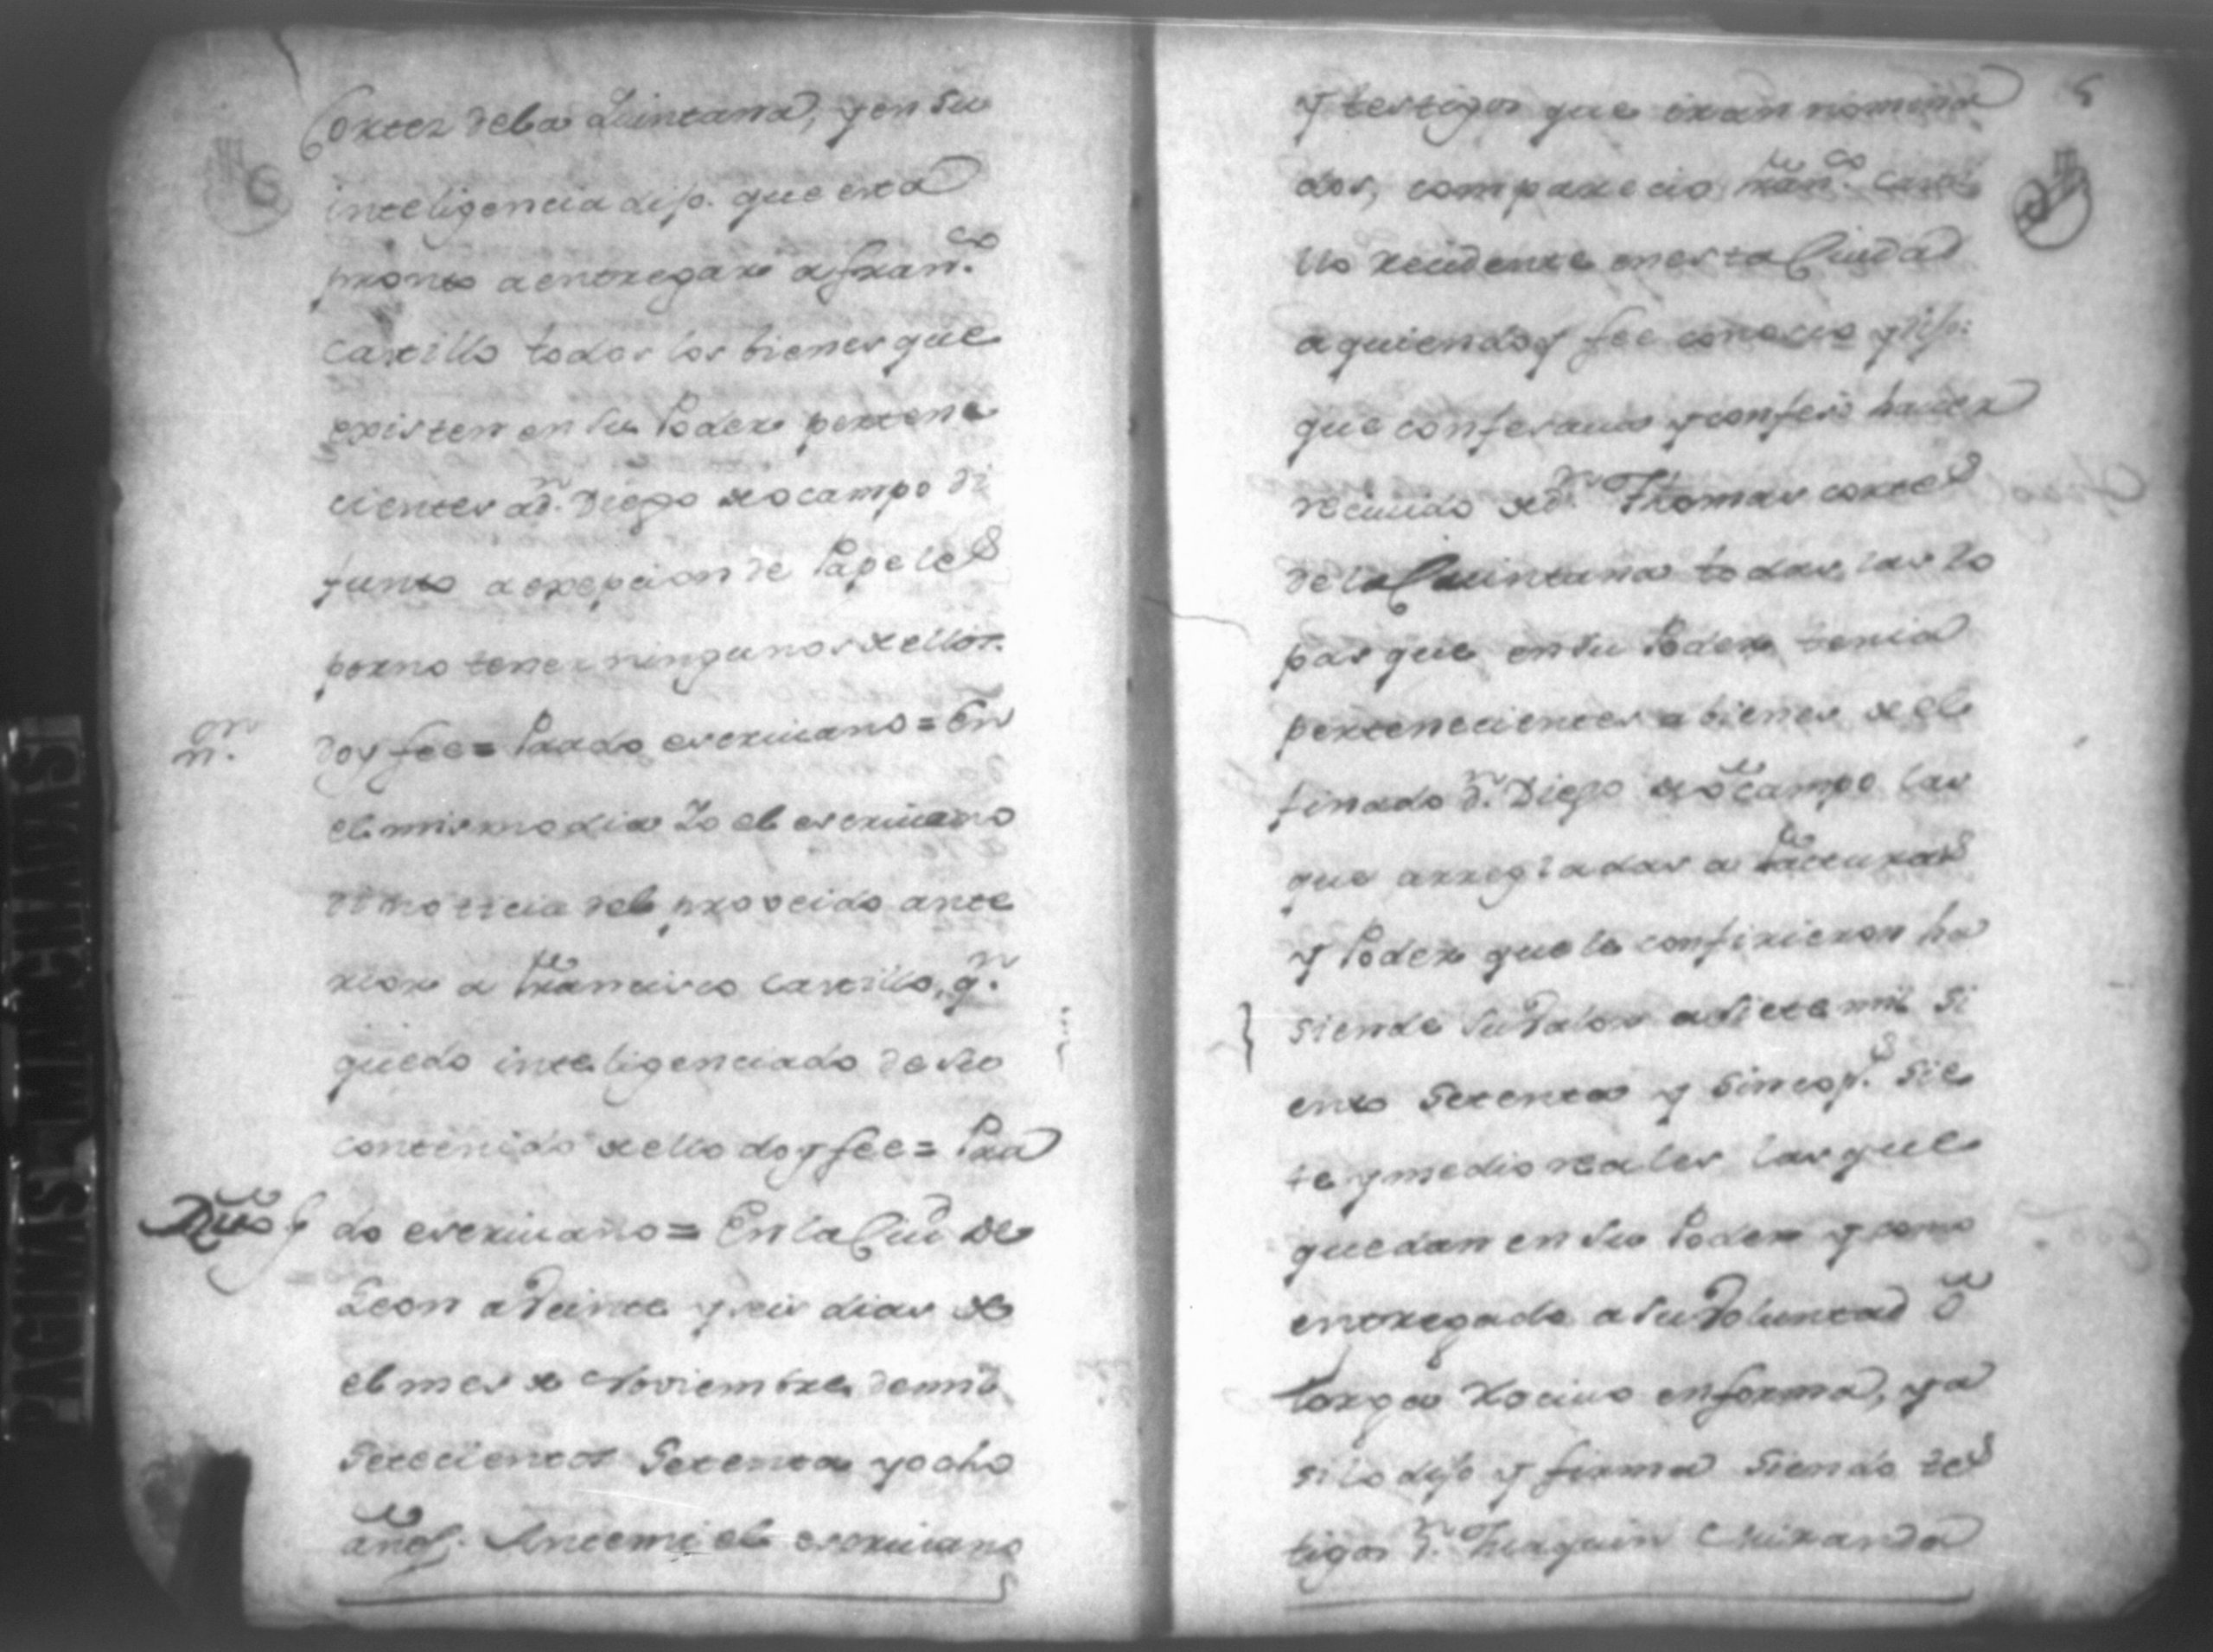 Cortes dela Quintana, y en su
inteligencia dijo. que esta
pronto a entregar a Fran.co
Castillo todos los bienes que
existen en su Poder pertene
cientes a dn. Diego de ocampo di
funto a exepcion de Papeles
por no tener ningunos de ellos.
doy fee = Prado escrivano = En
on
n.
el mismo dia Yo el escrivano
di noticia del proveido ante
rior a Francisco Castillo, qn.
quedo inteligenciado de su
contenido de ello doy fee = Pra
do escrivano = En la Ciud. de
Leon a Veinte y seis dias de
el mes de Noviembre de mil
Setecientos Setenta y ocho
años. Ante mi el escrivano
y testigos que iran nomina
dos, comparecio Fran.co Casti
llo recidente en esta Ciudad
a quien doy fee conosco y dijo:
que confesava y confesó haver
recivido de dn. Thomas cortes
de la Quintana todas las Ro
pas que en su Poder tenia
pertenecientes a bienes de el
finado dn. Diego de ocampo las
que arregladas a facturas
y Poder que le confirieron ha
siende su Valor a siete mil Si
ento Setenta y Sinco ps. Sie
te y medio reales las que
quedan en su Poder y como
entregado a su Voluntad o
torga Recivo en forma, y a
si lo dijo y firma Siendo tes
tigos dn. Juaquin Miranda